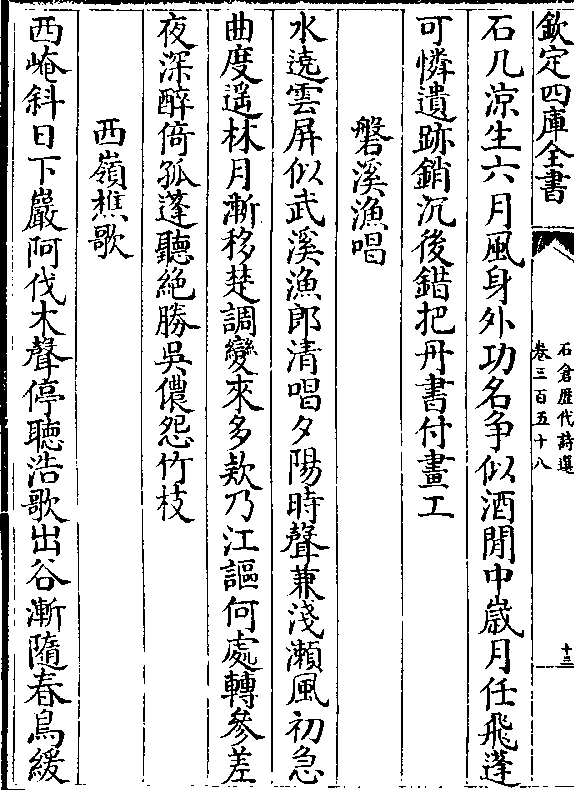 欽定四庫全書
石倉歷代詩選
卷三百五十八
十三
石几涼生六月風身外功名爭似酒閒中歲月任飛蓬
可憐遺跡銷沉後錯把丹書付畫工
磐溪漁唱
水遶雲屏似武溪漁郎清唱夕陽時聲兼淺瀨風初急
曲度遥林月漸移楚調變來多欵乃江謳何處轉參差
夜深醉倚孤蓬聽絶勝吳儂怨竹枝
西嶺樵歌
西崦斜日下巖阿伐木聲停聽浩歌出谷漸隨春鳥緩